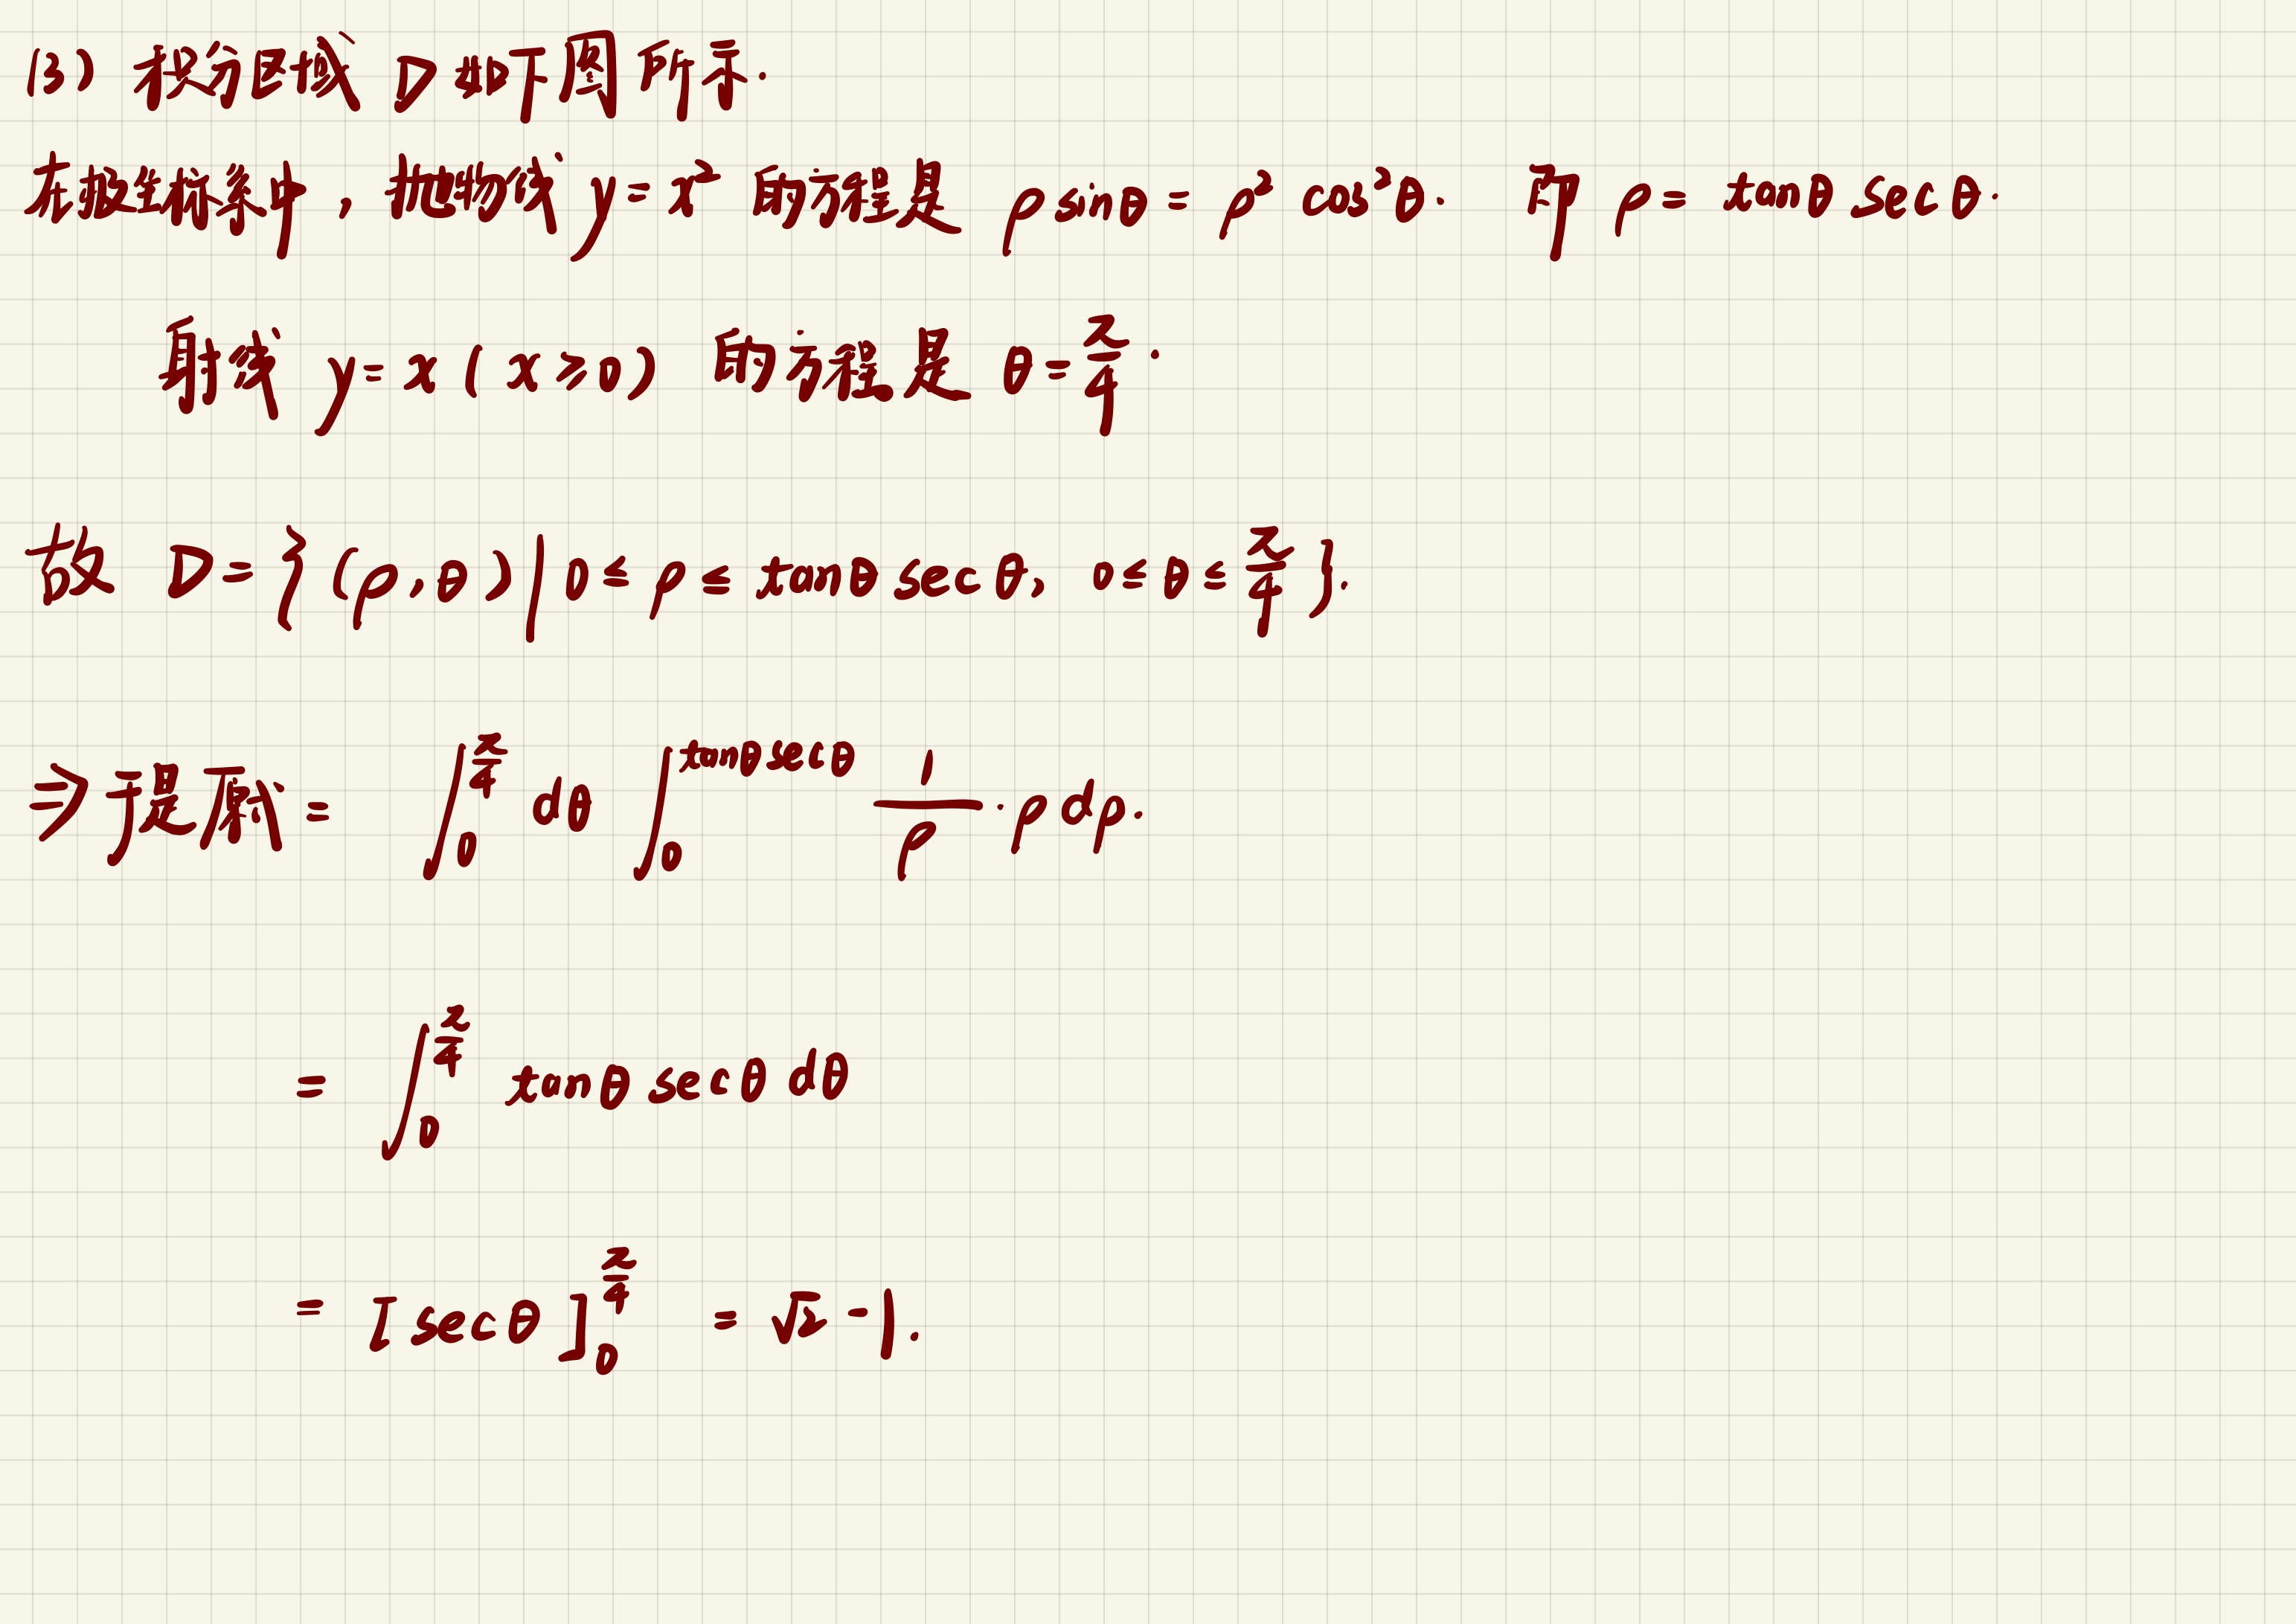 (3) 积分区域 D 如下图所示.
在极坐标系中, 抛物线 y=x² 的方程是 ρ sinθ = ρ² cos²θ. 即 ρ = tanθ secθ.
射线 y=x (x≥0) 的方程是 θ=π/4.
故 D={(ρ,θ)|0≤ρ≤tanθ secθ, 0≤θ≤π/4}.
⇒于是原式= ∫₀^(π/4) dθ ∫₀^(tanθ secθ) 1/ρ · ρ dρ.
= ∫₀^(π/4) tanθ secθ dθ
= [secθ]₀^(π/4) = √2 -1.